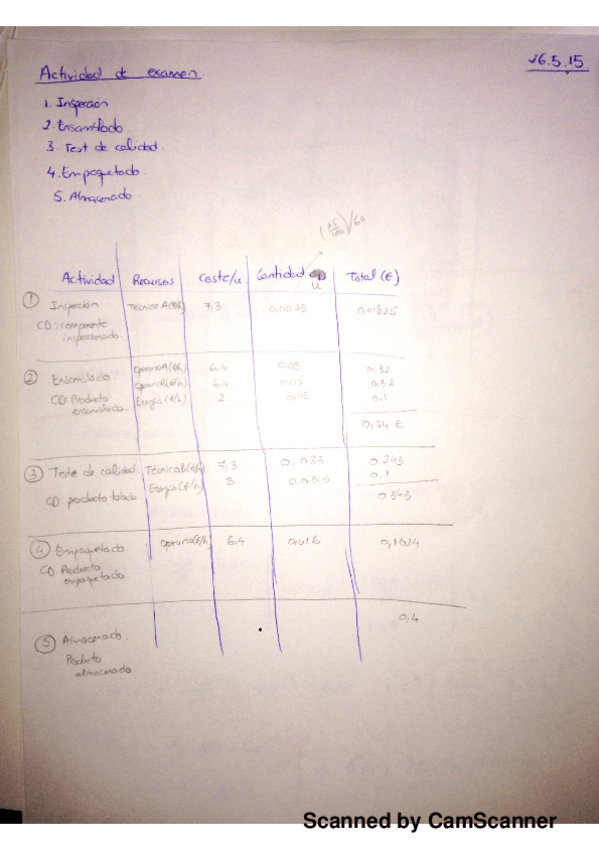 Actividad de examen
26.5.15
1. Inspección
2. Ensamblado
3 Test de calidad.
4. Empaquetado.
5. Almacenado
(15/100)/60
Actividad Recursos Coste/u Cantidad CD Total (€)
u
① Inspección Técnico A(€/h) 7,3 0,0025 0,01825
CD: componente
inspeccionado.
② Ensamblado. Operario A(€/h) 6,4 0,05 0,32
Operario B(€/h) 6,4 0,05 0,32
CD: Producto Energía (€/h) 2 0,05 0,1
ensamblado.
0,74 €
③ Teste de calidad Técnico B(€/h) 7,3 0,033 0,243
Energía (€/h) 3 0,033 0,1
CD producto testado 0,343
④ Empaquetado Operario(€/h) 6,4 0,016 0,1024
CD: Producto
empaquetado
0,4
⑤ Almacenado.
Producto
almacenado
Scanned by CamScanner